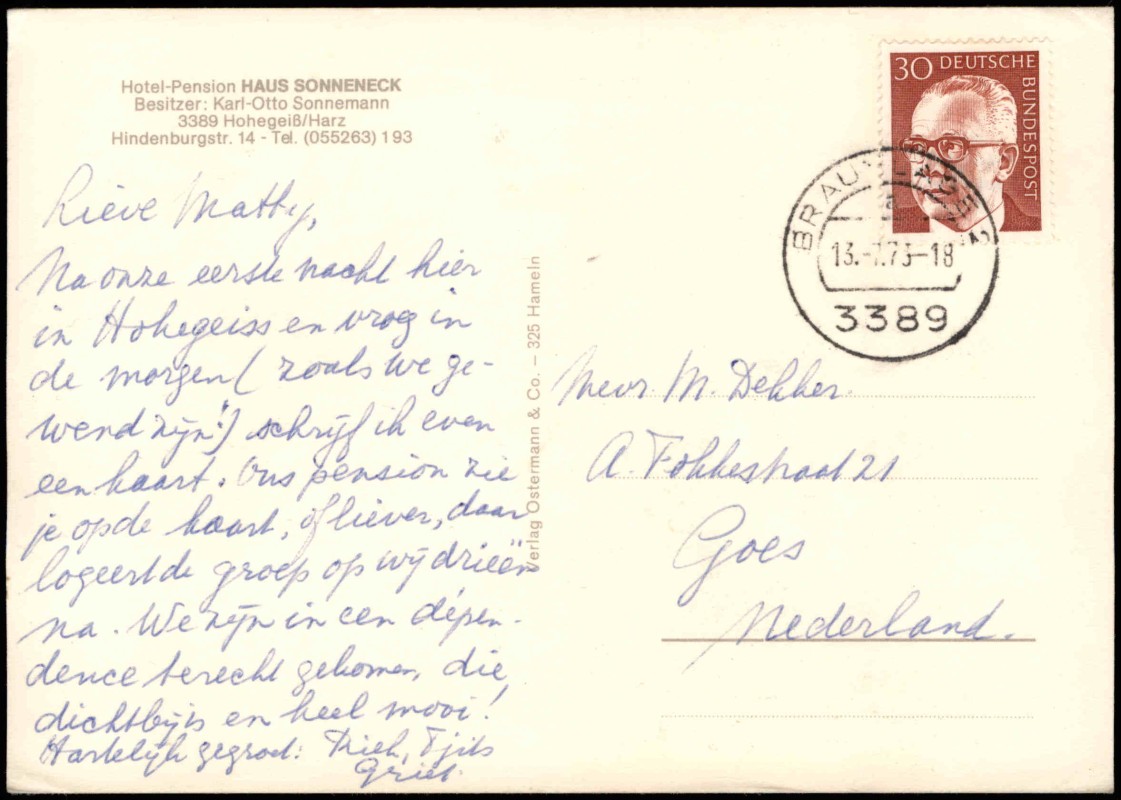 Hotel-Pension HAUS SONNENECK
Besitzer: Karl-Otto Sonnemann
3389 Hohegeiß/Harz
Hindenburgstr. 14 - Tel. (055263) 1 93
Lieve Matty,
Na onze eerste nacht hier
in Hohegeiss en vroeg in
de morgen (zoals we ge-
wend zijn!) schrijf ik even
een kaart. Ons pension zie
je op de kaart, of liever, daar
logeert de groep op wij drieën
na. We zijn in een dépen-
dence terecht gekomen, die,
dichtbij is en heel mooi!
Hartelijk gegroet: Riek, Tjits
Griet.
Verlag Ostermann & Co. – 325 Hameln
30 DEUTSCHE
BUNDESPOST
BRAUNLAGE 2
a
13.-7.73-18
3389
Mevr. M. Dekker.
A. Fokkestraat 21
Goes
Nederland.